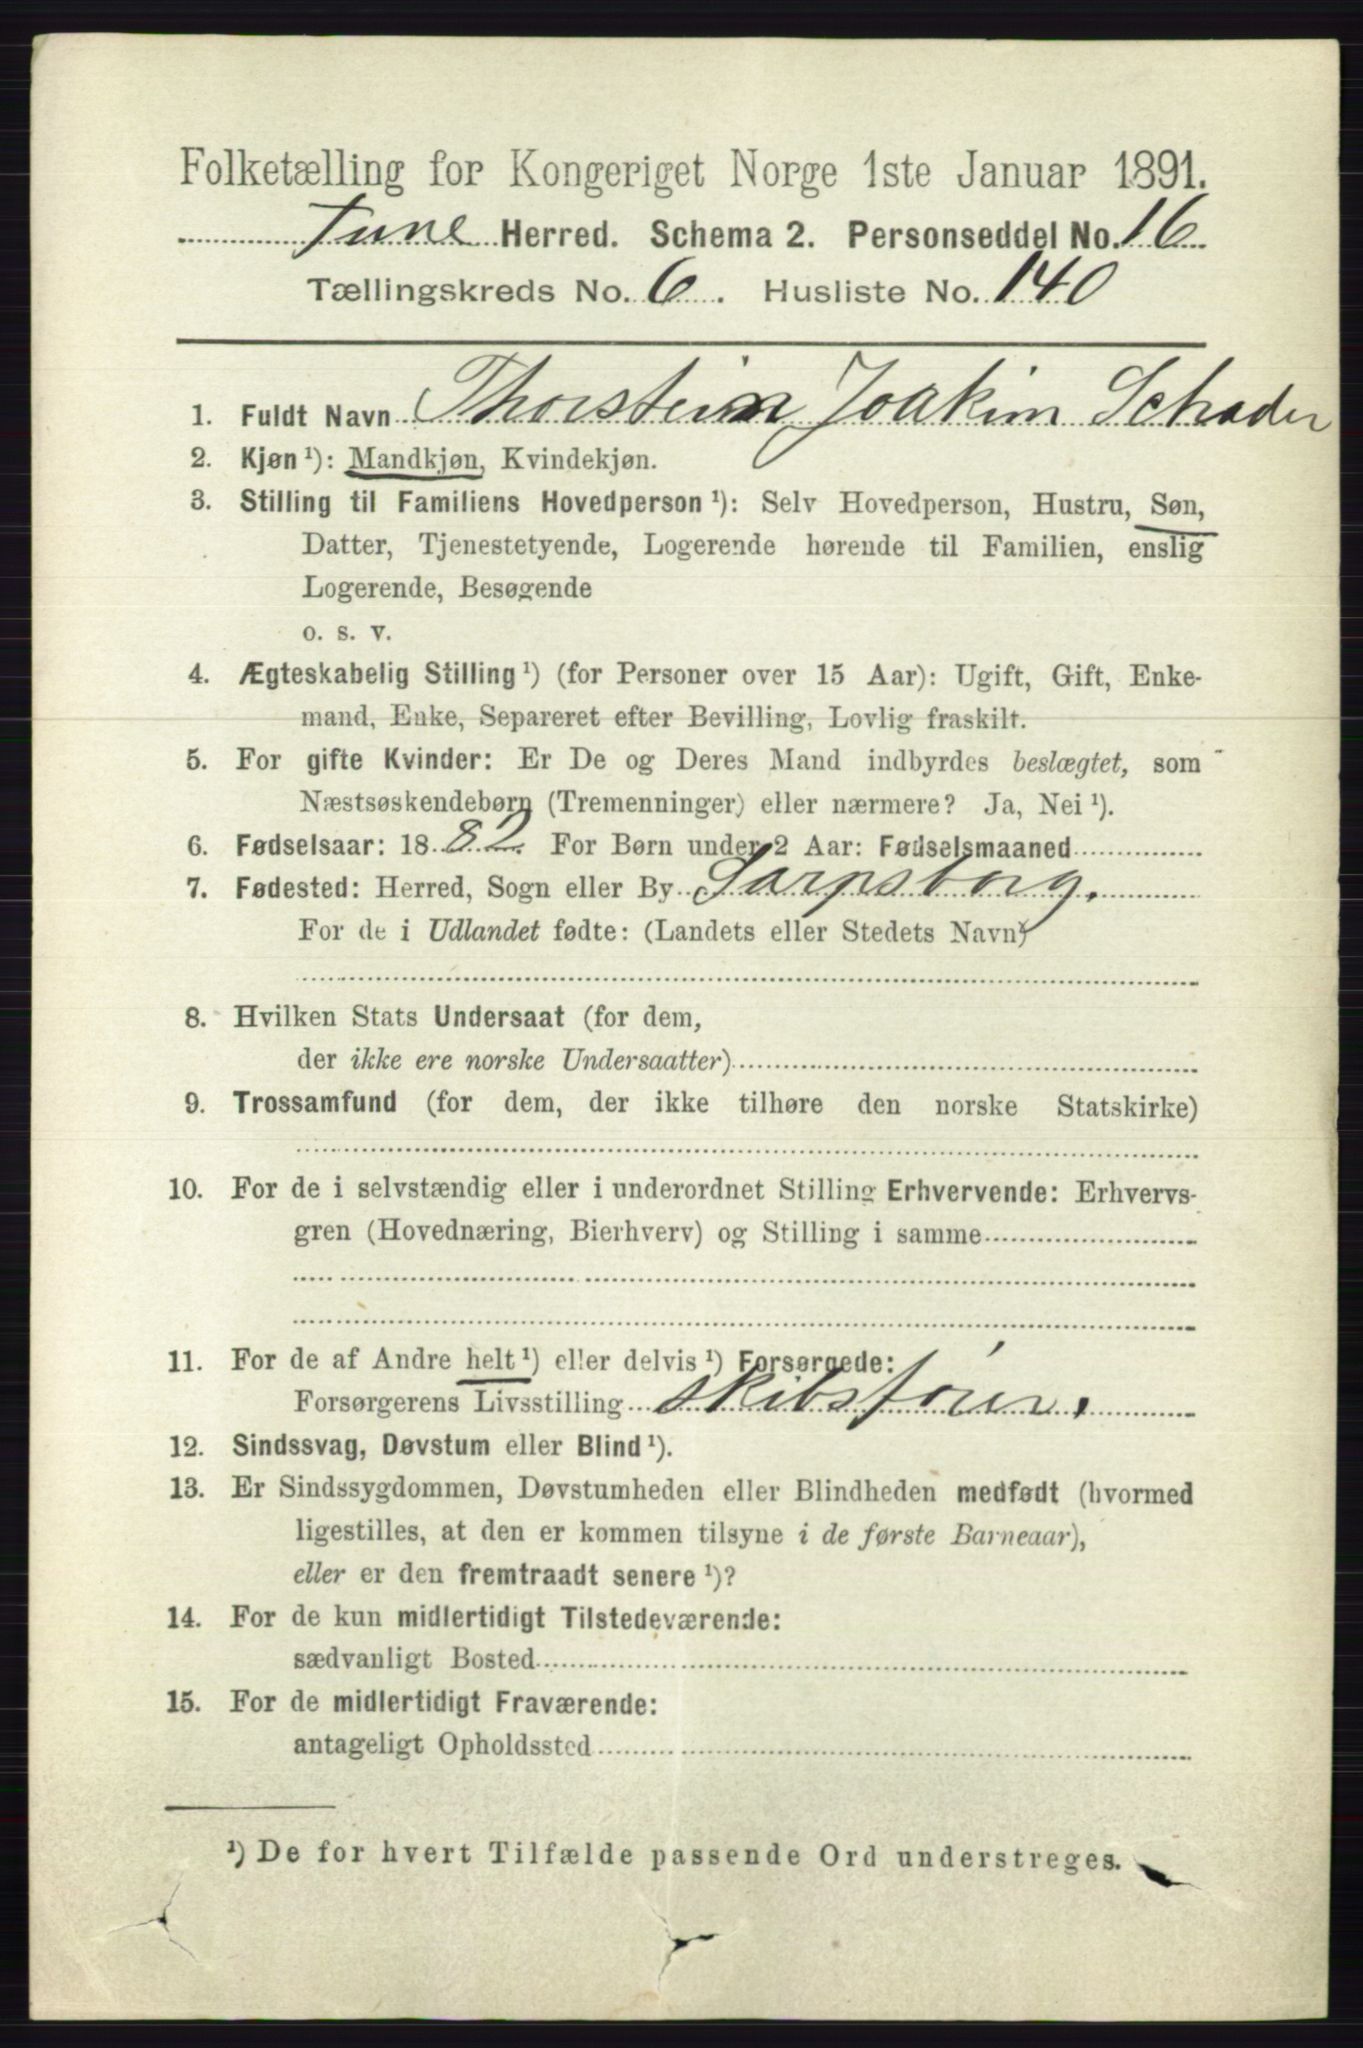 Folketælling for Kongeriget Norge 1ste Januar 1891.
Tune Herred. Schema 2. Personseddel No. 16
Tællingskreds No. 6. Husliste No. 140
1. Fuldt Navn Thorstein Joakim Schrader
2. Kjøn ¹): Mandkjøn, Kvindekjøn.
3. Stilling til Familiens Hovedperson ¹): Selv Hovedperson, Hustru, Søn,
Datter, Tjenestetyende, Logerende hørende til Familien, enslig
Logerende, Besøgende
o. s. v.
4. Ægteskabelig Stilling ¹) (for Personer over 15 Aar): Ugift, Gift, Enke-
mand, Enke, Separeret efter Bevilling, Lovlig fraskilt.
5. For gifte Kvinder: Er De og Deres Mand indbyrdes beslægtet, som
Næstsøskendebørn (Tremenninger) eller nærmere? Ja, Nei ¹).
6. Fødselsaar: 1882. For Børn under 2 Aar: Fødselsmaaned
7. Fødested: Herred, Sogn eller By Sarpsborg.
For de i Udlandet fødte: (Landets eller Stedets Navn)
8. Hvilken Stats Undersaat (for dem,
der ikke ere norske Undersaatter)
9. Trossamfund (for dem, der ikke tilhøre den norske Statskirke)
10. For de i selvstændig eller i underordnet Stilling Erhvervende: Erhvervs-
gren (Hovednæring, Bierhverv) og Stilling i samme
11. For de af Andre helt ¹) eller delvis ¹) Forsørgede:
Forsørgerens Livsstilling skibsfører.
12. Sindssvag, Døvstum eller Blind ¹).
13. Er Sindssygdommen, Døvstumheden eller Blindheden medfødt (hvormed
ligestilles, at den er kommen tilsyne i de første Barneaar),
eller er den fremtraadt senere ¹)?
14. For de kun midlertidigt Tilstedeværende:
sædvanligt Bosted
15. For de midlertidigt Fraværende:
antageligt Opholdssted
¹) De for hvert Tilfælde passende Ord understreges.